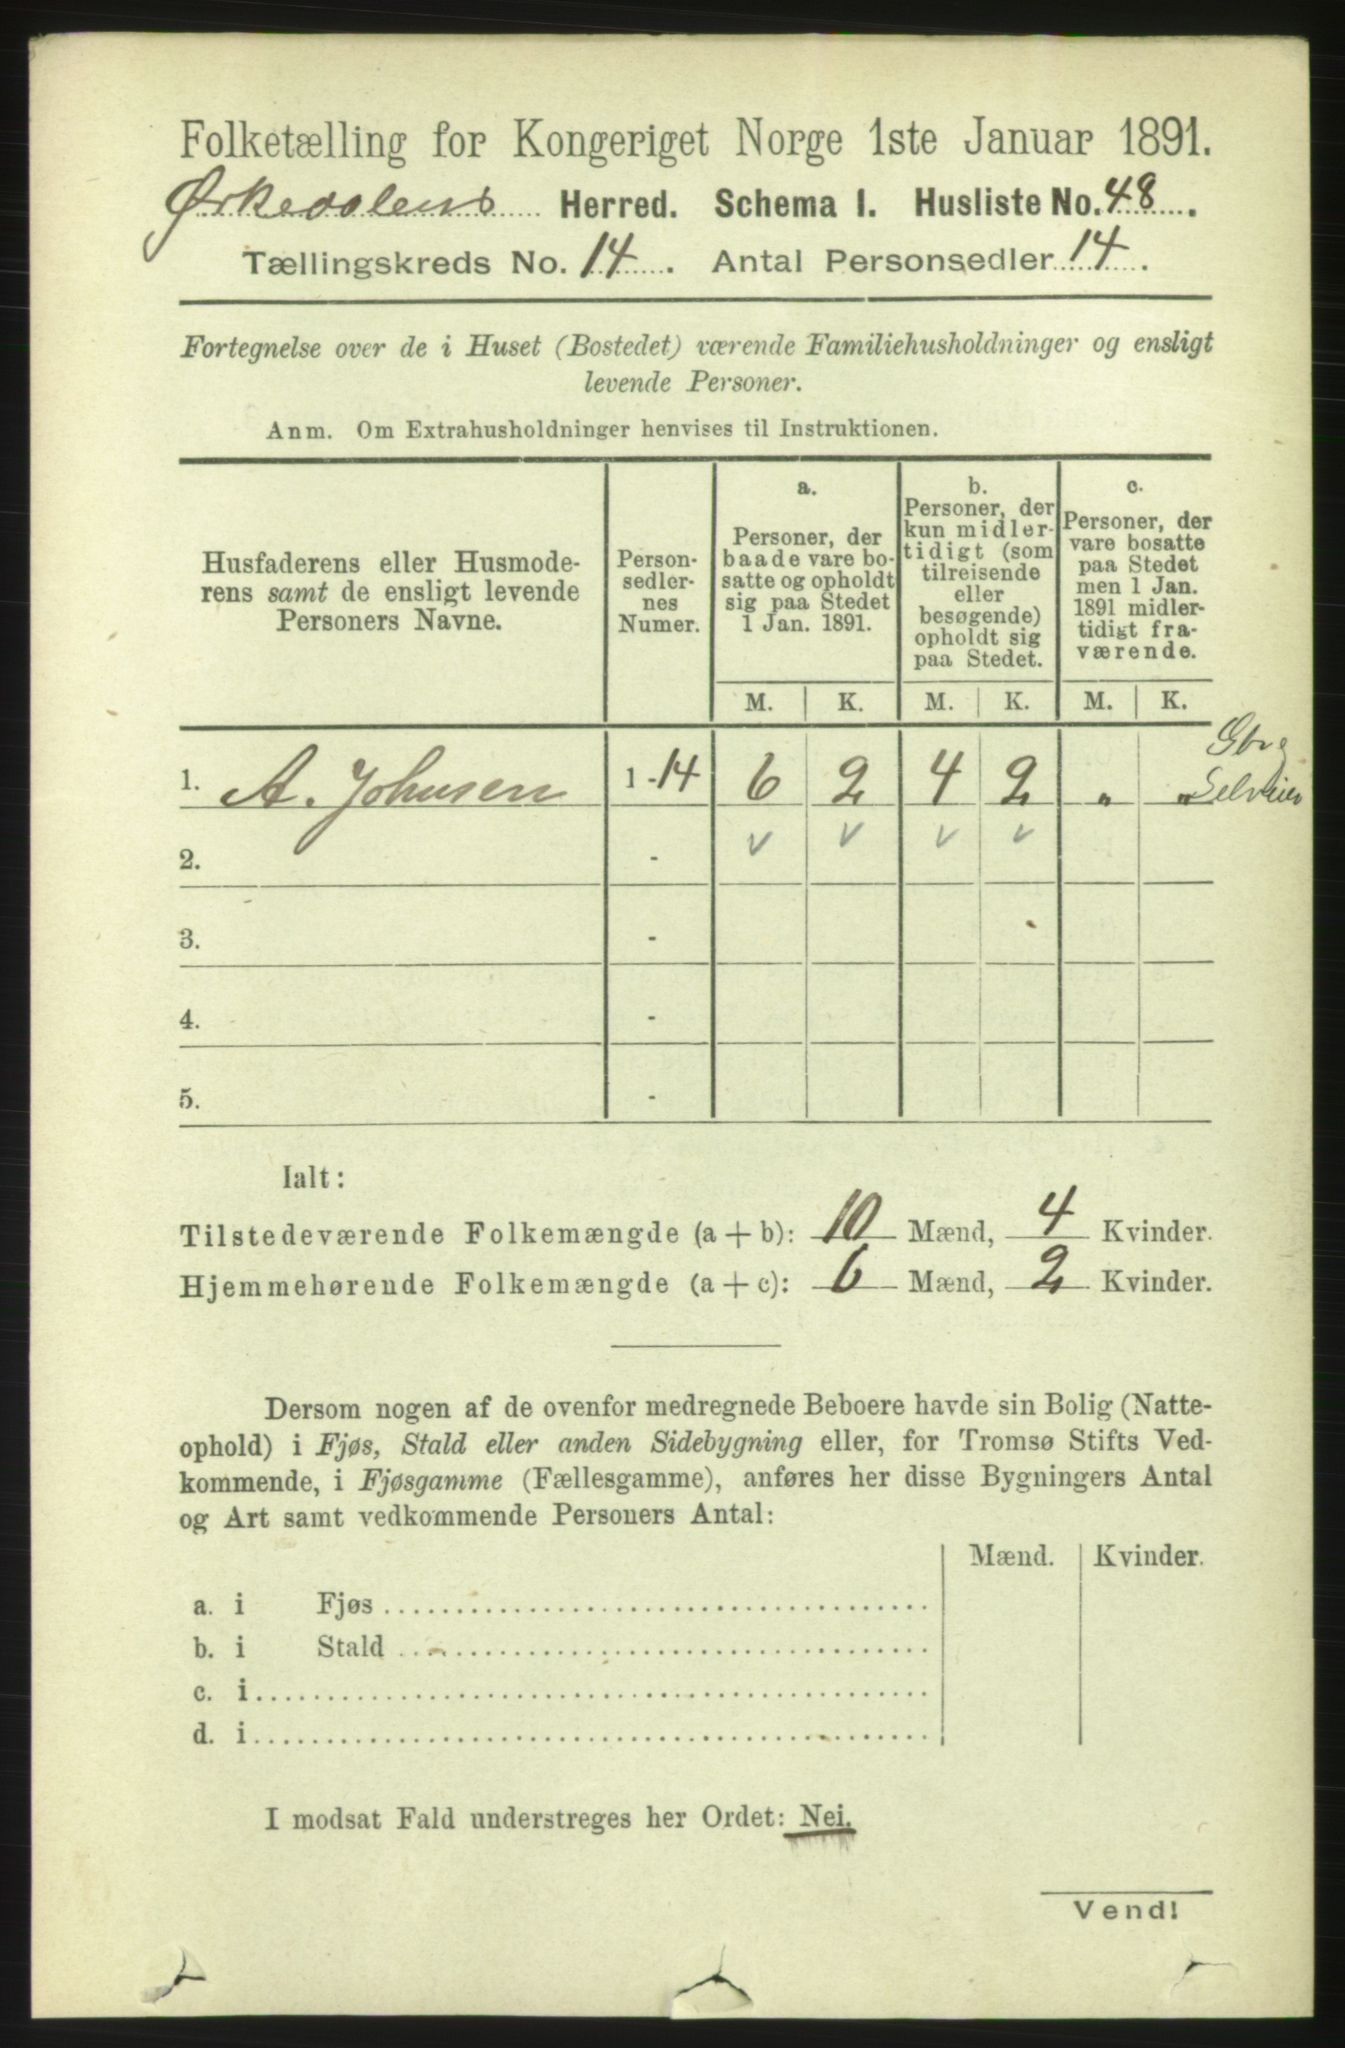 Folketælling for Kongeriget Norge 1ste Januar 1891.
Ørkedalens Herred. Schema I. Husliste No. 48.
Tællingskreds No. 14. Antal Personsedler 14.
Fortegnelse over de i Huset (Bostedet) værende Familiehusholdninger og ensligt
levende Personer.
Anm. Om Extrahusholdninger henvises til Instruktionen.
Husfaderens eller Husmode-
rens samt de ensligt levende
Personers Navne.
Person-
sedler-
nes
Numer.
a.
Personer, der
baade vare bo-
satte og opholdt
sig paa Stedet
1 Jan. 1891.
b.
Personer, der
kun midler-
tidigt (som
tilreisende
eller
besøgende)
opholdt sig
paa Stedet.
c.
Personer, der
vare bosatte
paa Stedet
men 1 Jan.
1891 midler-
tidigt fra-
værende.
M. K. M. K. M. K.
1. A. Johnsen 1-14 6 2 4 2 " "
Selveier
2. - v v v v
3. -
4. -
5. -
Ialt:
Tilstedeværende Folkemængde (a + b): 10 Mænd, 4 Kvinder.
Hjemmehørende Folkemængde (a + c): 6 Mænd, 2 Kvinder.
Dersom nogen af de ovenfor medregnede Beboere havde sin Bolig (Natte-
ophold) i Fjøs, Stald eller anden Sidebygning eller, for Tromsø Stifts Ved-
kommende, i Fjøsgamme (Fællesgamme), anføres her disse Bygningers Antal
og Art samt vedkommende Personers Antal:
Mænd. Kvinder.
a. i Fjøs
b. i Stald
c. i
d. i
I modsat Fald understreges her Ordet: Nei.
Vend!